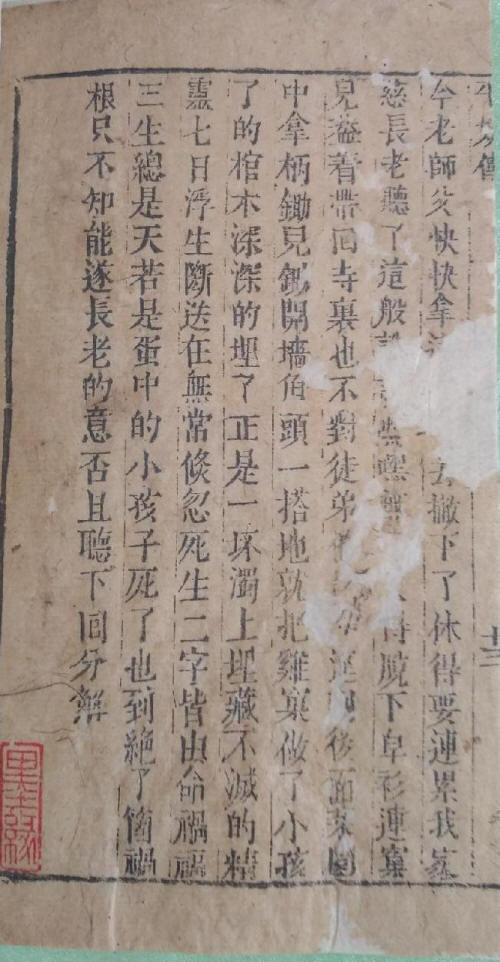 平妖傳
兮老師父快快拿去撇下了休得要連累我家
慈長老聽了這般說得脫下皁衫連窠
兒盖着帶囘寺裏也不對徒弟後面菜園
中拿柄鋤兒鋤開墻角頭一搭地就把雞窠做了小孩
了的棺木深深的埋了正是一坏濁土埋藏不滅的精
靈七日浮生斷送在無常倐忽死生二字皆由命禍福
三生總是天若是蛋中的小孩子死了也到絶了箇禍
根只不知能遂長老的意否且聽下囘分解
廿三